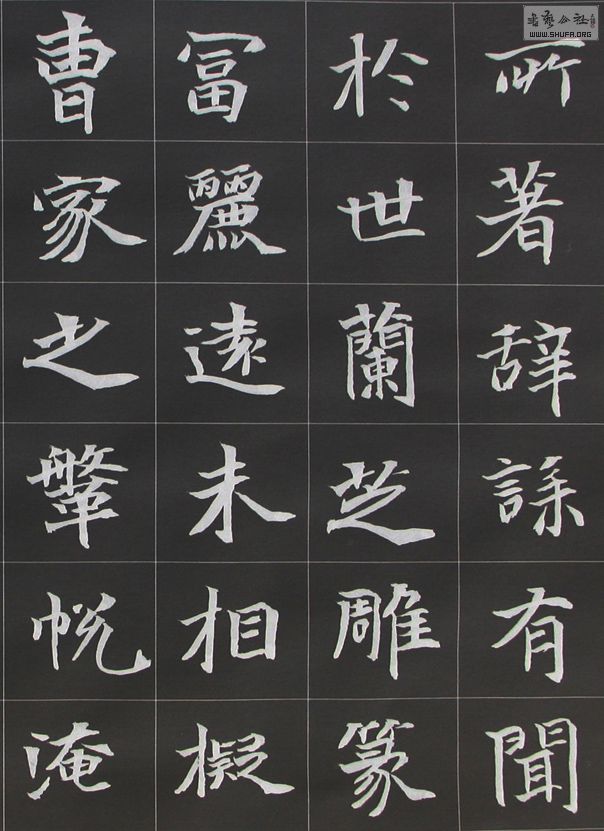 書藝公社
WWW.SHUFA.ORG
所著辞誄有聞
於世蘭芝雕篆
冨麗遠未相擬
曹家之鞶帨淹